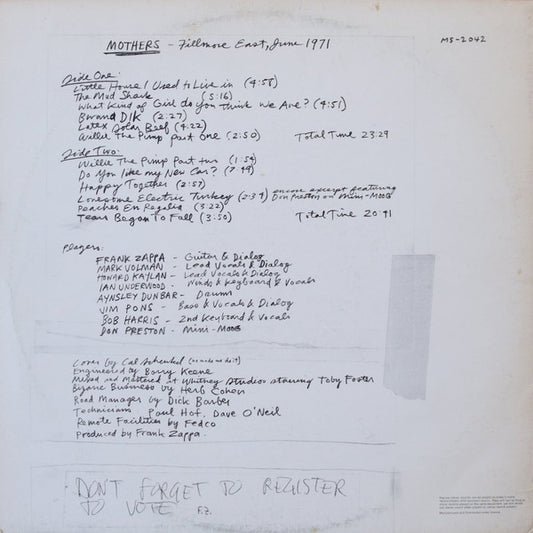 MOTHERS - Fillmore East, June 1971
MS-2042
Side One:
Little House I Used to Live in (4:58)
The Mud Shark (5:16)
What Kind of Girl do you Think We Are? (4:51)
Bwana Dik (2:27)
Latex Solar Beef (4:22)
Willie The Pimp Part One (2:50) Total Time 23:29
Side Two:
Willie The Pimp Part two (1:54)
Do You Like my New Car? (7:49)
Happy Together (2:57)
Lonesome Electric Turkey (2:34) encore excerpt featuring Don Preston on Mini-MOOG
Peaches En Regalia (3:22)
Tears Began To Fall (3:50) Total Time 20:41
Players:
FRANK ZAPPA - Guitar & Dialog
MARK VOLMAN - Lead Vocals & Dialog
HOWARD KAYLAN - Lead Vocals & Dialog
IAN UNDERWOOD - Winds & Keyboard & Vocals
AYNSLEY DUNBAR - Drums
JIM PONS - Bass & Vocals & Dialog
BOB HARRIS - 2nd Keyboard & Vocals
DON PRESTON - Mini-MOOG
Cover by Cal Schenkel
Engineered by Barry Keene
Mixed and Mastered at Whitney Studios starring Toby Foster
Bizarre Business by Herb Cohen
Road Manager by Dick Barber
Technicians Paul Hof, Dave O'Neil
Remote Facilities by Fedco
Produced by Frank Zappa.
DON'T FORGET TO REGISTER
TO VOTE F.Z.